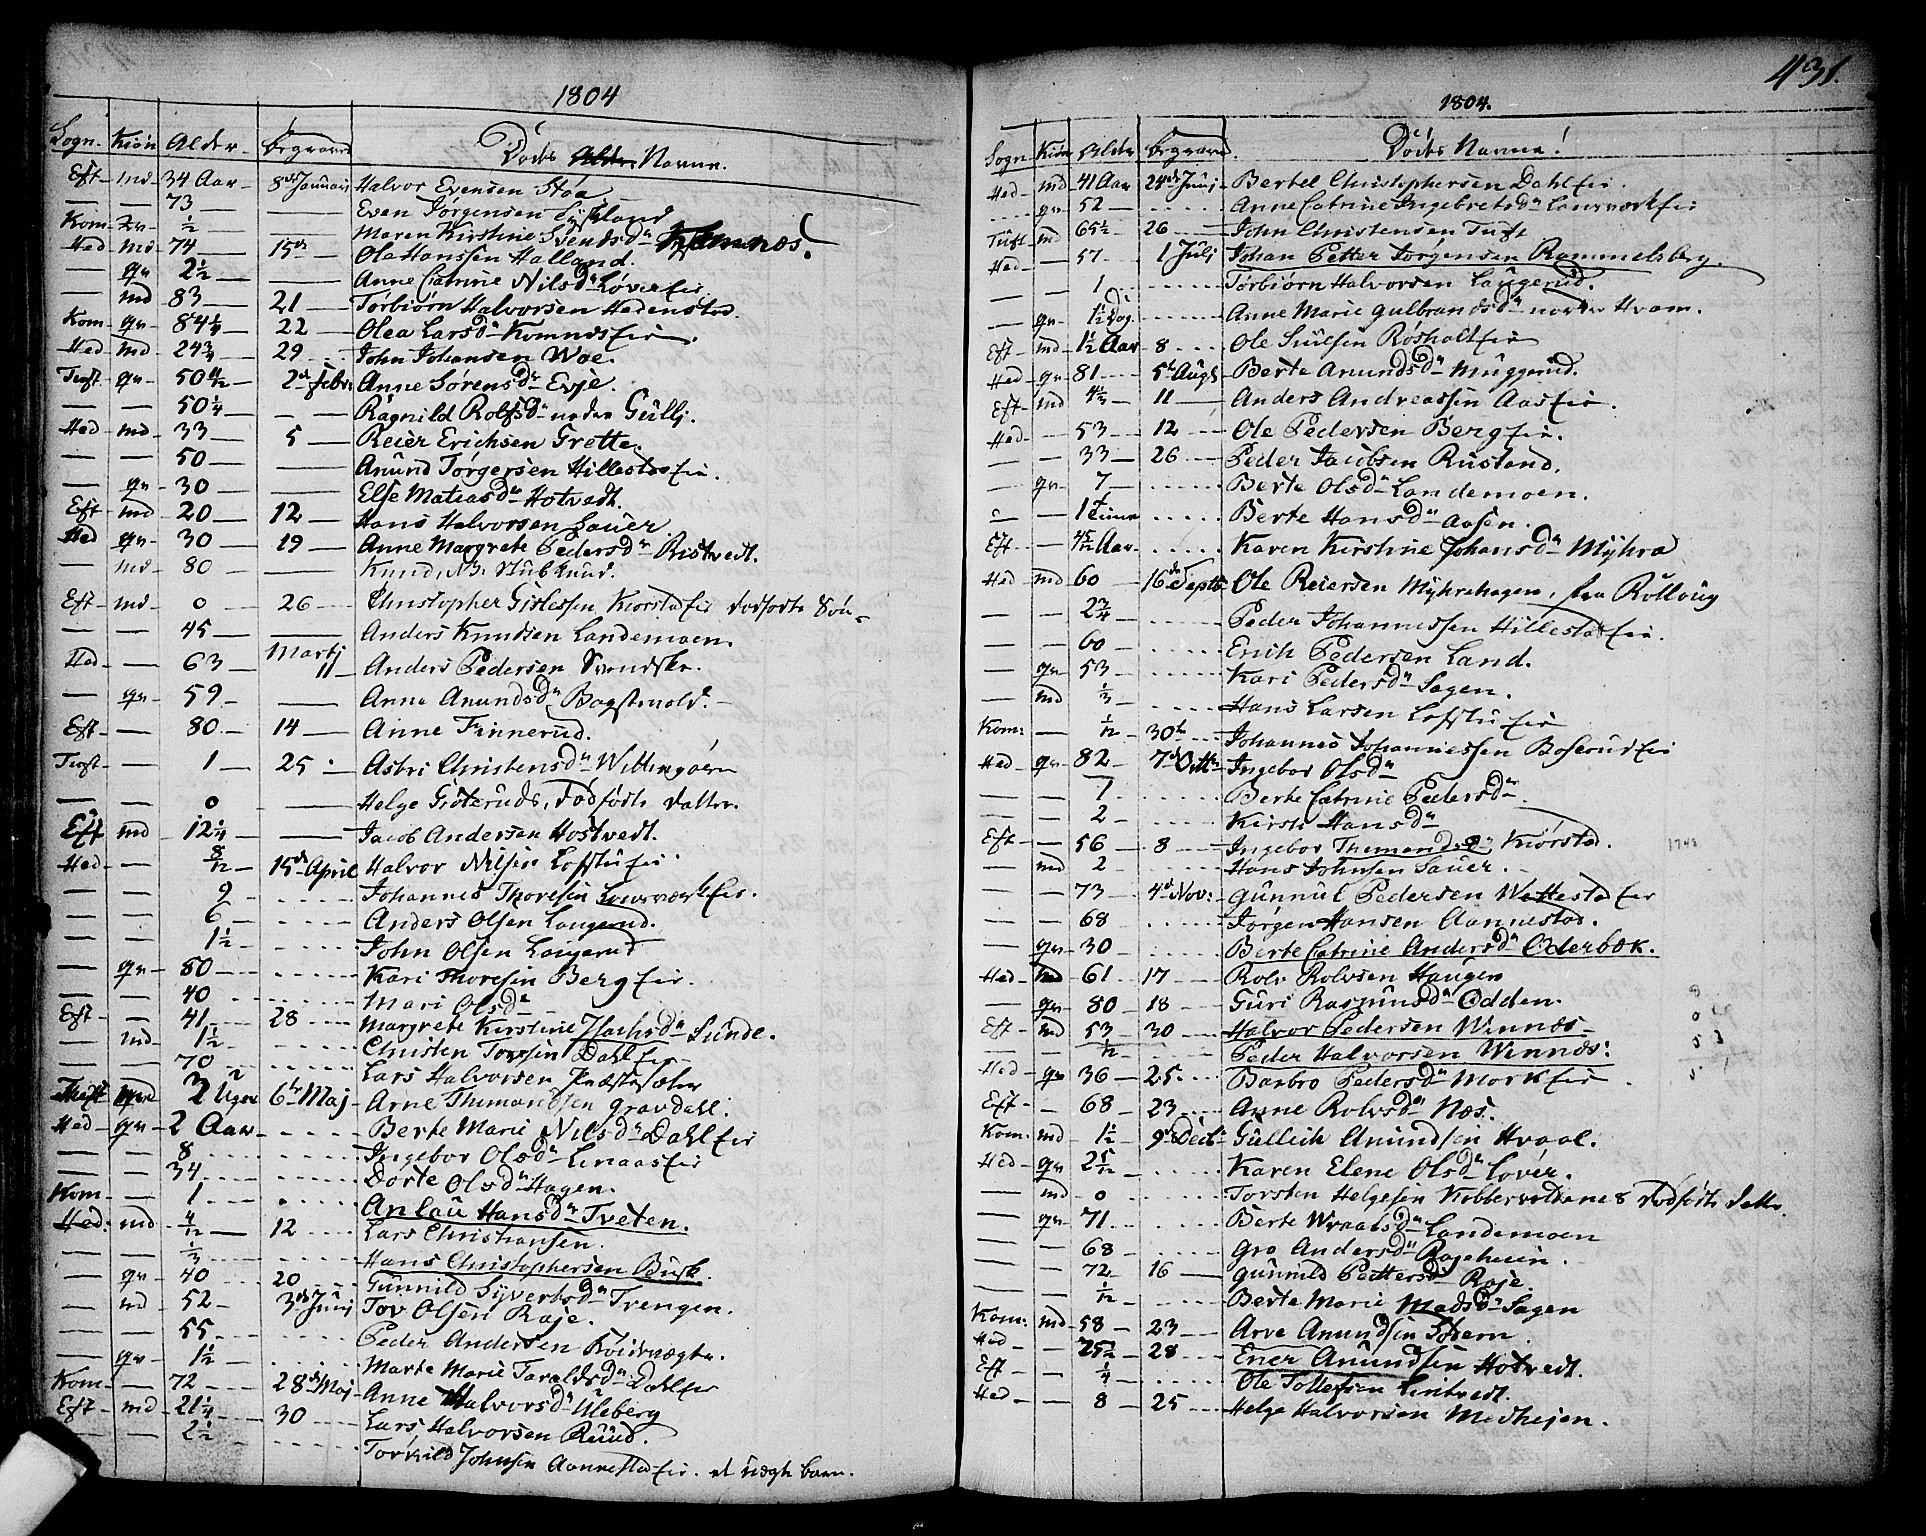 431.
1804
Sogn. Kiön Alder Begravne Döds Navne.
Eft md 34 Aar 8de Januarj Halvor Evensen Stoa
— — 73 — Even Jörgensen Lÿseland
Kom. qv ½ — Maren Kirstine Svendsdr Komnæs.
Hed md 74 15de Ola Hanssen Halland.
— qv 2½ — Anne Catrine Nilsdr Löver eier
— md 83 21 Torbiörn Halvorsen Hedenstad.
Kom qv 84¼ 22 Olea Larsdr Komnæs eier.
Hed md 24¾ 29 John Johansen Woe.
Tuft qv 50 2de Febr: Anne Sörensdr Evje.
— — 50¼ — Ragnild Rolfsdr nedre Gullj.
Hed md 33 5 Reier Erichsen Trette.
— — 50 — Anund Torgersen Hillestad eier.
— qv 30 — Else Matiasdr Hotvedt.
Eft md 20 12 Hans Halvorsen Sauer.
Hed qv 30 19 Anne Margrete Pedersdr Ristvedt.
— md 80 — Knud, NB. Stub Knud.
Eft md 0 26 Christopher Gislessen Kiorstad eier dödfödte Sön
— — 45 — Anders Knudsen Landemoen.
Hed — 63 Martj 11 Anders Pedersen Svendske.
— qv 59 — Anne Anundsdr Bagstevold.
Eft — 80 14 Anne Finnerud.
Tuft — 1 25 Astri Christensdr Wittingöen
— — 0 — Helge Gioteruds, dödfödte datter.
Eft md 12¼ — Jacob Andersen Hostvedt.
Hed — 8/12 15de April Halvor Nilsen Lofstu eier
— — 9 Johannes Thoresen Laurværk eier.
— — 6 Anders Olsen Langerud.
— — 1½ John Olsen Langerud
— qv 80 Kari Thoresen Berg eier.
— — 40 Mari Olsdr
Eft — 41 28 Margrete Kirstine Sunde.
— md 1½ Christen Torssen Dahl eier
— — 70 Lars Halvorsen Præstesæter
Tuft md 3 Uger 6te Maj Arne Thimandsen Gravdall.
Hed qv 2 Aar Berte Marie Nilsdr Dahl eier
— — 8 Ingebor Olsdr Linaas eier
— — 34 Dorte Olsdr Hagen.
Kom — 1 Anlau Hansdr Tveten.
Hed: md 4/12 12 Lars Christiansen.
— — ⅓ Hans Christophersen Busk.
— qv 40 20 Gunnild Syvertsdr Trengen.
— md 52 3de Junj Tov Olsen Raje.
— — 55 Peder Andersen
— qv 1½ Marte Marie Taraldsdr Dahl eier
Kom — 72 28de Maj Anne Halvorsdr Uleberg
Eft md 21¼ 30 Lars Halvorsen Ruud.
— — 2½ Torkild Johnsen Aannestad eier. et uægte barn.
1804.
Sogn Kiön Alder Begravne. Döds Navne!
Hed md 41 Aar 24de Junj Bertel Christophersen Dahl eier.
qv 52 Anne Catrine Ingebretsdr Laurværk eier
Tuft md 65½ 26 John Christensen Tuft
Hed — 57 1 Julj Johan Petter Jörgensen Rammelsberg.
— — 1 Torbiörn Halvorsen Langerud.
— qv 1½ Dög. Anne Marie Gulbrandsdr nordre Hvam.
Eft md 1½ Aar 8 Ole Rösholt eier
Hed qv 81 5te Aug: Berte Anundsdr Muggerud.
Eft md 11 Anders Andreassen Aas eier.
Hed — 53 12 Ole Pedersen Berg eier.
— — 33 26 Peder Jacobsen Rustand.
— qv 7 Berte Olsdr Landemoen.
— — 1 Time Berte Hansdr Aasen.
Eft — Aar Karen Kirstine Johansdr Myhra
Hed md 60 16de Septb: Ole Reiersen Myhrehagen, fra Rolloug
— — 2¾ Peder Johannessen Hillestad eier.
— — 60 Erich Pedersen Land.
— qv 53 Kari Pedersdr Sagen.
— md ⅓ Hans Larsen Lofstu eier
Kom: — 1/12 30te Johannes Johannessen Boserud eier
Hed qv 82 7de Octb: Ingebor Olsdr
— — 7 Berte Catrine Pedersdr
— — 2 Kirsti Hansdr
Eft — 56 8 Ingebor Themandsdr Kiörstad. 1748
— md 2 Hans Johnsen Sauer.
— — 73 4de Nov: Gunnul Pedersen Wettestad eier
— — 68 Jörgen Hansen Aannestad.
— qv 30 Berte Catrine Andersdr Oderbök.
Hed md 61 17 Rolv Rolvsen Haugen
— qv 80 18 Guri Rasmusdr Odden.
Eft md 53 30 Halvor Pedersen Winnæs
— — 1/12 Peder Halvorsen Winnæs:
Hed qv 36 25 Barbro Pedersdr Mork eier
Eft — 68 23 Anne Rolvsdr Næs.
Kom. md 1½ 9de Decb: Gullich Anundsen Hvaal.
Hed qv 2 5/12 Karen Elene Olsdr Lovér.
— md 0 Torsten Helgesen Kobbervoldane s dödfödte datter.
— qv 71 Berte Wraalsdr Landemoen
— — 68 Gro Andersdr Rajeheien.
— — 72 16 Gunnild Pettersdr Raje.
— — 1/12 Berte Marie Madsdr Sagen
Kom: md 58 23 Arve Anundsen Södern.
Hed — 25 28 Ener Anundsen Hotvedt.
Eft — ¼ Ole Tollefsen Lintvedt.
Hed — 8 25 Helge Halvorsen Medhejen.